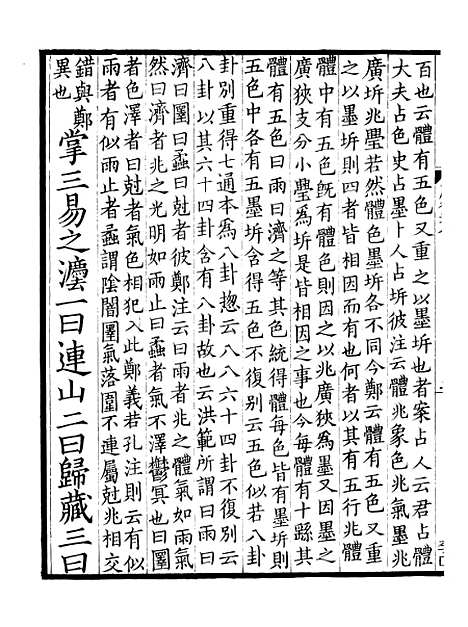 百也云體有五色又重之以墨坼也者案占人云君占體
大夫占色史占墨卜人占坼彼注云體兆象色兆氣墨兆
廣坼兆璺若然體色墨坼各不同今鄭云體有五色又重
之以墨坼則四者皆相因而有也何者以其有五行兆體
體中有五色旣有體色則因之以兆廣狹爲墨又因墨之
廣狹支分小璺爲坼是皆相因之事也今每體有十繇其
體有五色曰雨曰濟之等其色統得體每色皆有墨坼則
五色中各有五墨坼含得五色不復別云五色似若八卦
卦別重得七通本爲八卦揔云八八六十四卦不復別云
八卦以其六十四卦含有八卦故也云洪範所謂曰雨曰
濟曰圛曰蟊曰尅者彼鄭注云曰雨者兆之體氣如雨氣
然曰濟者兆之光明如雨止曰蟊者氣不澤鬱冥也曰圛
者色澤者曰尅者氣色相犯入此鄭義若孔注則云有似
雨者有似雨止者蟊謂陰闇圛氣落圛不連屬尅兆相交
錯與鄭
異也
掌三易之灋一曰連山二曰歸藏三曰